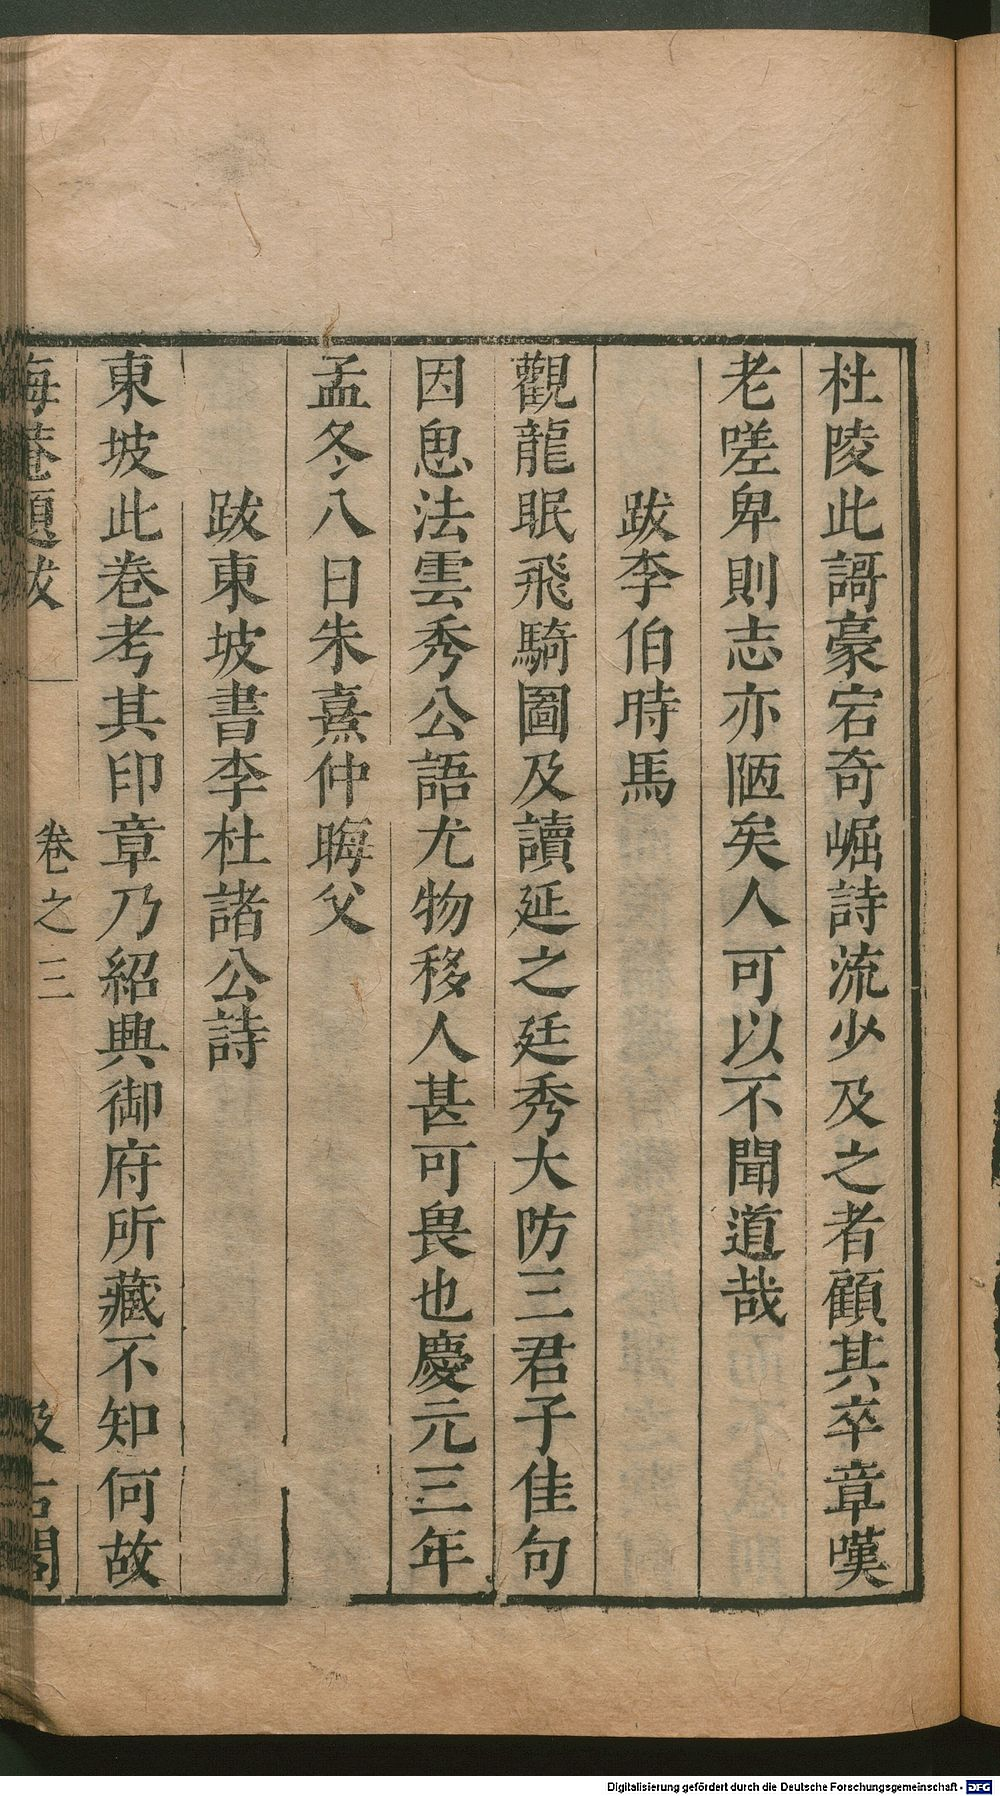 杜陵此謌豪宕奇崛詩流少及之者顧其卒章嘆
老嗟卑則志亦陋矣人可以不聞道哉
跋李伯時馬
觀龍眠飛騎圖及讀延之廷秀大防三君子佳句
因思法雲秀公語尤物移人甚可畏也慶元三年
孟冬八日朱熹仲晦父
跋東坡書李杜諸公詩
東坡此卷考其印章乃紹興御府所藏不知何故
晦菴題跋 卷之三 汲古閣
Digitalisierung gefördert durch die Deutsche Forschungsgemeinschaft - DFG